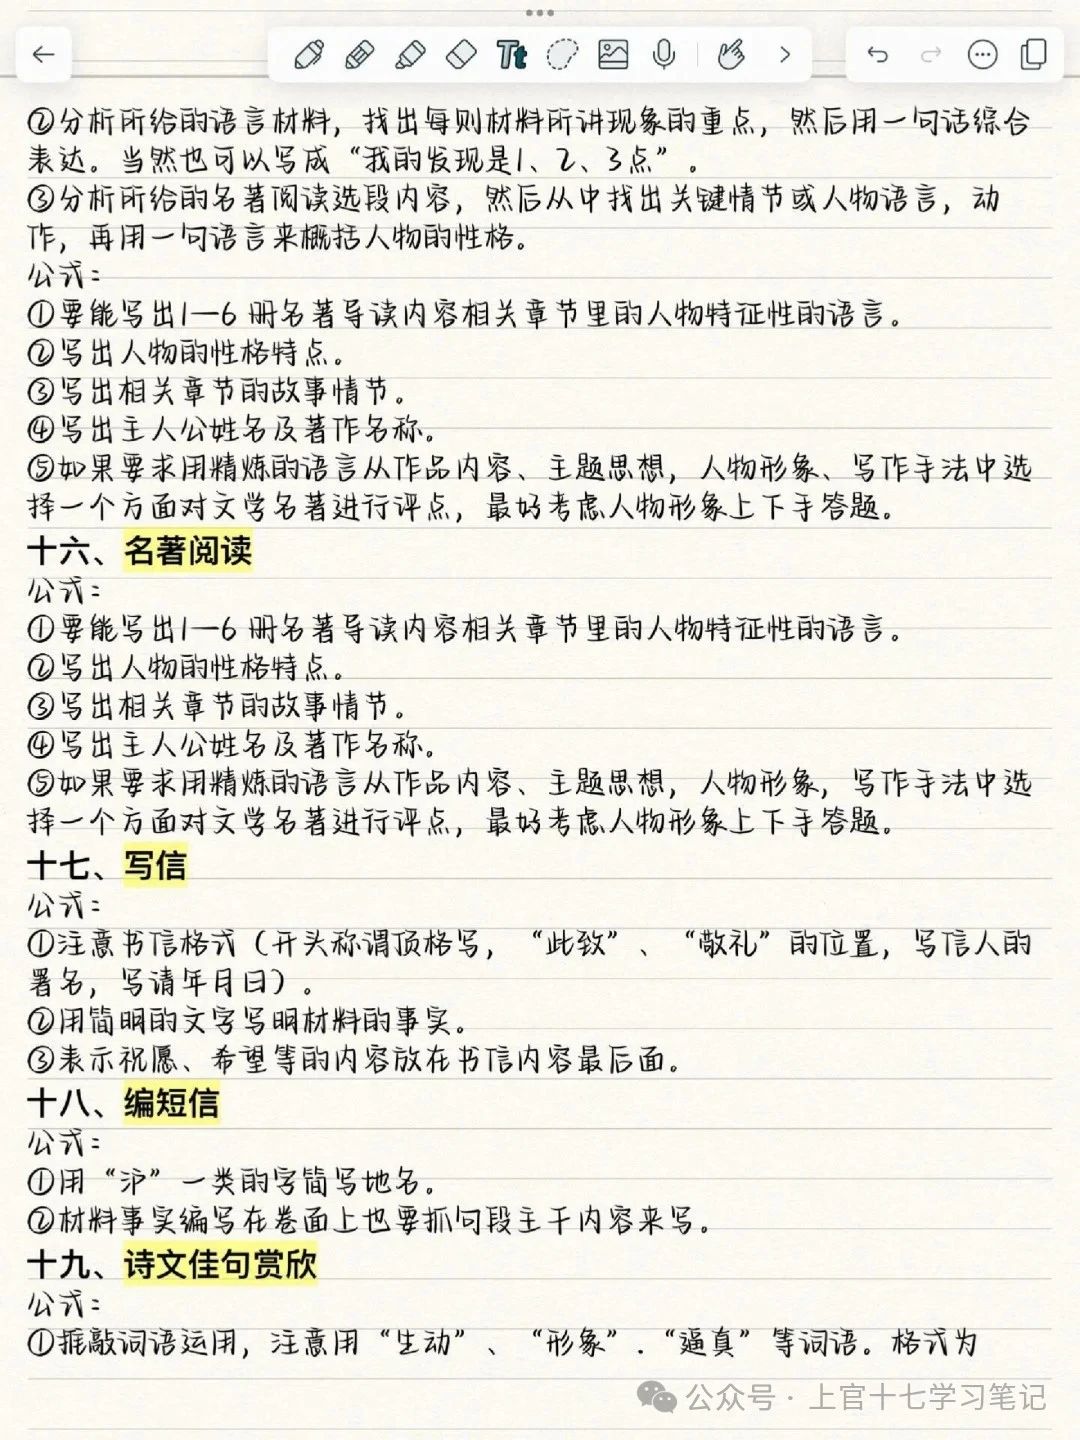 Tt
②分析所给的语言材料，找出每则材料所讲现象的重点，然后用一句话综合
表达。当然也可以写成“我的发现是1、2、3点”。
③分析所给的名著阅读选段内容，然后从中找出关键情节或人物语言，动
作，再用一句语言来概括人物的性格。
公式：
①要能写出1—6 册名著导读内容相关章节里的人物特征性的语言。
②写出人物的性格特点。
③写出相关章节的故事情节。
④写出主人公姓名及著作名称。
⑤如果要求用精炼的语言从作品内容、主题思想，人物形象、写作手法中选
择一个方面对文学名著进行评点，最好考虑人物形象上下手答题。
十六、名著阅读
公式：
①要能写出1—6 册名著导读内容相关章节里的人物特征性的语言。
②写出人物的性格特点。
③写出相关章节的故事情节。
④写出主人公姓名及著作名称。
⑤如果要求用精炼的语言从作品内容、主题思想，人物形象，写作手法中选
择一个方面对文学名著进行评点，最好考虑人物形象上下手答题。
十七、写信
公式：
①注意书信格式（开头称谓顶格写，“此致”、“敬礼”的位置，写信人的
署名，写请年月日）。
②用简明的文字写明材料的事实。
③表示祝愿、希望等的内容放在书信内容最后面。
十八、编短信
公式：
①用“沪”一类的字简写地名。
②材料事实编写在卷面上也要抓句段主干内容来写。
十九、诗文佳句赏欣
公式：
①推敲词语运用，注意用“生动”、“形象”．“逼真”等词语。格式为
公众号 · 上官十七学习笔记